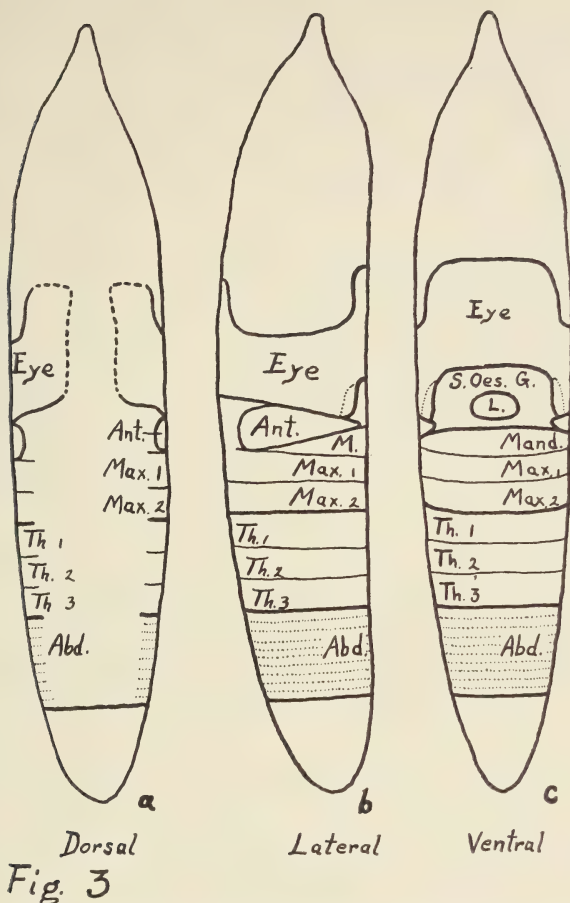 Eye
Ant.
Max. 1
Max. 2
Th 1
Th. 2
Th 3
Abd.
a
Dorsal
Eye
Ant.
M.
Max. 1
Max. 2
Th. 1
Th. 2
Th. 3
Abd.
b
Lateral
Eye
S. Oes. G.
L.
Mand.
Max. 1
Max. 2
Th. 1
Th. 2
Th. 3
Abd.
c
Ventral
Fig. 3